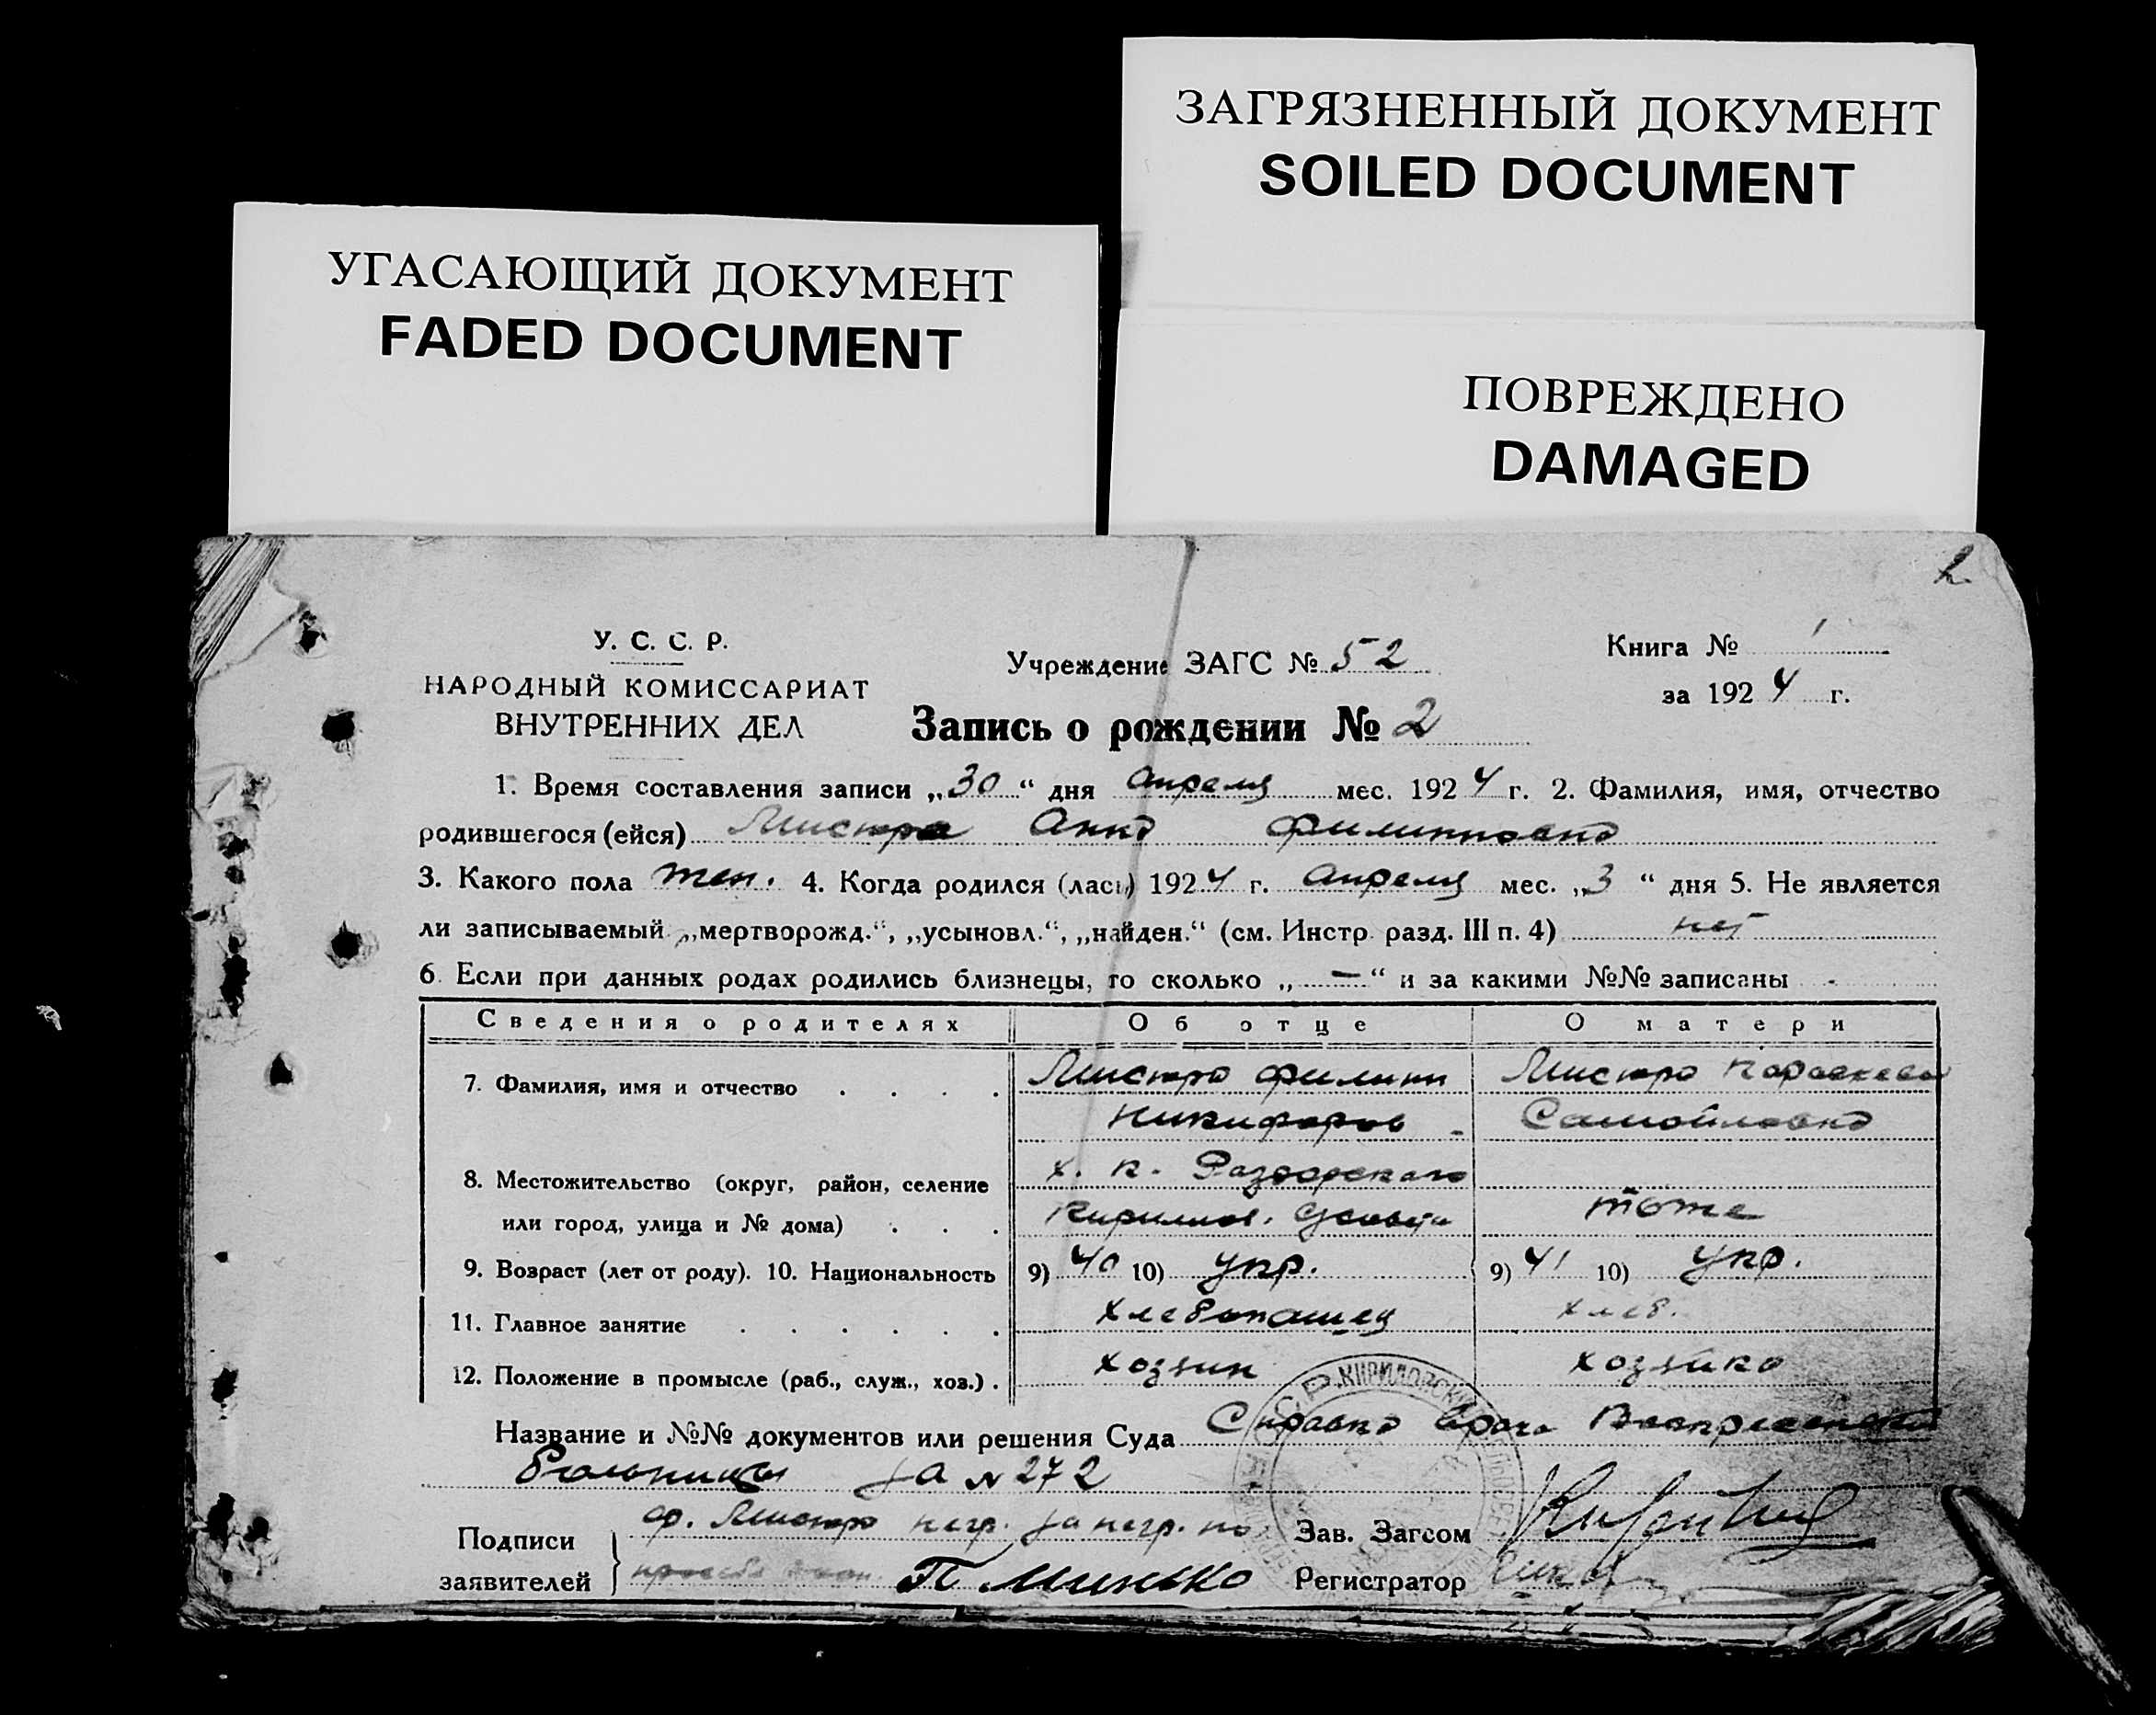 ЗАГРЯЗНЕННЫЙ ДОКУМЕНТ
SOILED DOCUMENT
УГАСАЮЩИЙ ДОКУМЕНТ
FADED DOCUMENT
ПОВРЕЖДЕНО
DAMAGED
2.
У. С. С. Р.
НАРОДНЫЙ КОМИССАРИАТ
ВНУТРЕННИХ ДЕЛ
Учреждение ЗАГС № 52
Книга № 1
за 1924 г.
Запись о рождении № 2
1. Время составления записи „30“ дня апреля мес. 1924 г. 2. Фамилия, имя, отчество
родившегося (ейся) Мистра Анна Филипповна
3. Какого пола жен. 4. Когда родился (лась) 1924 г. апреля мес. „3“ дня 5. Не является
ли записываемый „мертворожд.“, „усыновл.“, „найден.“ (см. Инстр. разд. III п. 4) нет
6. Если при данных родах родились близнецы, то сколько „—“ и за какими №№ записаны -
Сведения о родителях Об отце О матери
7. Фамилия, имя и отчество Мистро Филипп Мистро Параскева
Никифоров Самойловна
8. Местожительство (округ, район, селение х. к. Раздорского
или город, улица и № дома) Кирилов. тоже
9. Возраст (лет от роду). 10. Национальность 9) 40 10) укр. 9) 41 10) укр.
11. Главное занятие хлебопашец хлеб.
12. Положение в промысле (раб., служ., хоз.) хозяин хозяйка
Название и №№ документов или решения Суда Справка врача Воскресенской
больницы за № 272
Подписи заявителей
ф. Мистро негр. за негр. по
П Минько
Зав. Загсом
Регистратор
КИРИЛОВСКИЙ